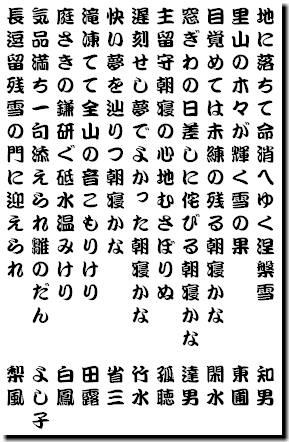 地に落ちて命消へゆく涅槃雪 知男
里山の木々が輝く雪の果 東圃
目覚めては未練の残る朝寝かな 閑水
窓ぎわの日差しに侘びる朝寝かな 達男
主留守朝寝の心地むさぼりぬ 孤聴
遅刻せし夢でよかった朝寝かな 竹水
快い夢を辿りつ朝寝かな 省三
滝凍てて全山の音こもりけり 田露
庭さきの鎌研ぐ砥水温みけり 白鳳
気品満ち一句添えられ雛のだん よし子
長逗留残雪の門に迎えられ 梨風